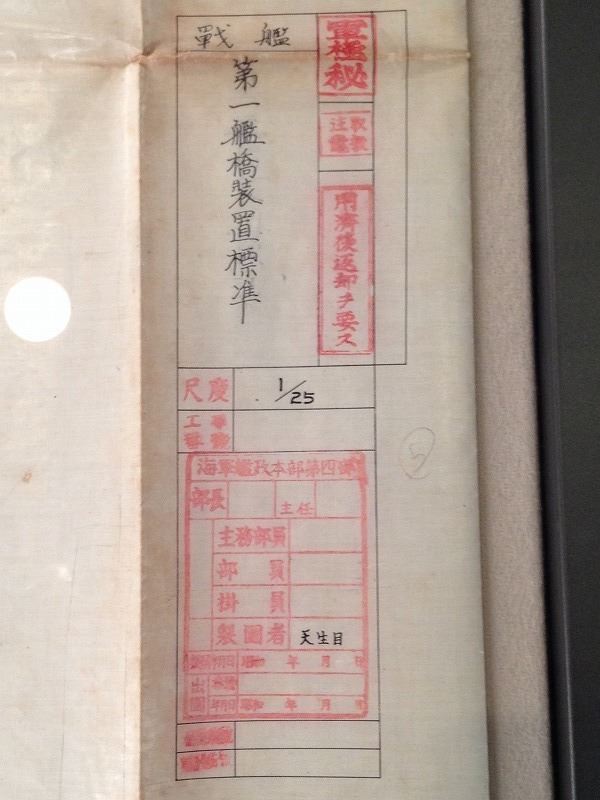 軍極秘
取扱
注意
用濟後返却ヲ要ス
戰艦
第一艦橋裝置標準
尺度 1/25
海軍艦政本部第四課
部長 主任
主務部員
部員
掛員
製圖者 天生目
昭和 年 月 日
出圖
年月日 昭和 年 月 日
5